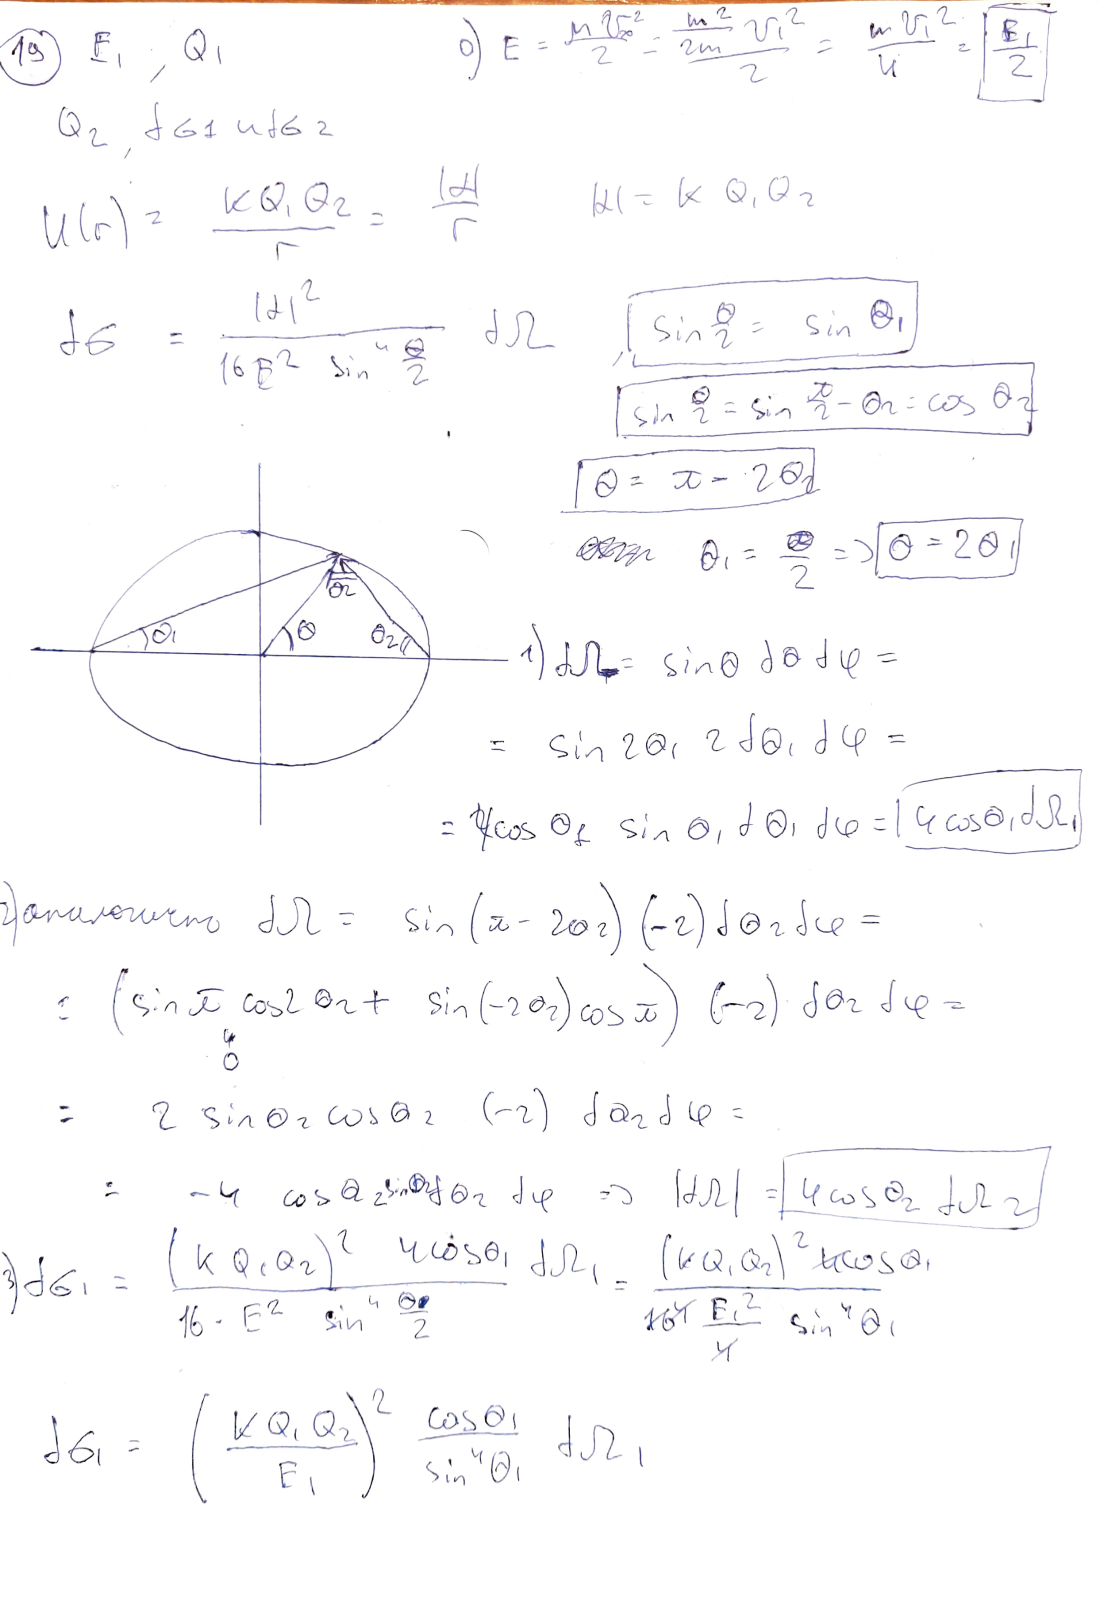 19 E₁, Q₁
0) E = μv∞²/2 = m²/2m v₁²/2 = mv₁²/4 = E₁/2
Q₂, dσ1 и dσ2
U(r) = kQ₁Q₂/r = |α|/r |α| = kQ₁Q₂
dσ = |α|²/(16E² sin⁴ θ/2) dΩ, sin θ/2 = sin θ₁
sin θ/2 = sin π/2 - θ₂ = cos θ₂
θ = π - 2θ₂
θ₁ = θ/2 => θ = 2θ₁
θ₁ θ θ₂ θ₂
1) dΩ = sinθ dθ dφ =
= sin 2θ₁ 2 dθ₁ dφ =
= 4cos θ₁ sin θ₁ dθ₁ dφ = 4cosθ₁ dΩ₁
2) аналогично dΩ = sin(π - 2θ₂) (-2) dθ₂ dφ =
= (sin π cos2θ₂ + sin(-2θ₂) cos π) (-2) · dθ₂ dφ =
0
= 2 sin θ₂ cos θ₂ (-2) dθ₂ dφ =
= -4 cos θ₂ sinθ₂ dθ₂ dφ => |dΩ| = 4cosθ₂ dΩ₂
3) dσ₁ = (kQ₁Q₂)² 4cosθ₁/(16 · E² sin⁴ θ/2) dΩ₁ = (kQ₁Q₂)² 4cosθ₁/(16 E₁²/4 sin⁴θ₁)
dσ₁ = (kQ₁Q₂/E₁)² cosθ₁/sin⁴θ₁ dΩ₁